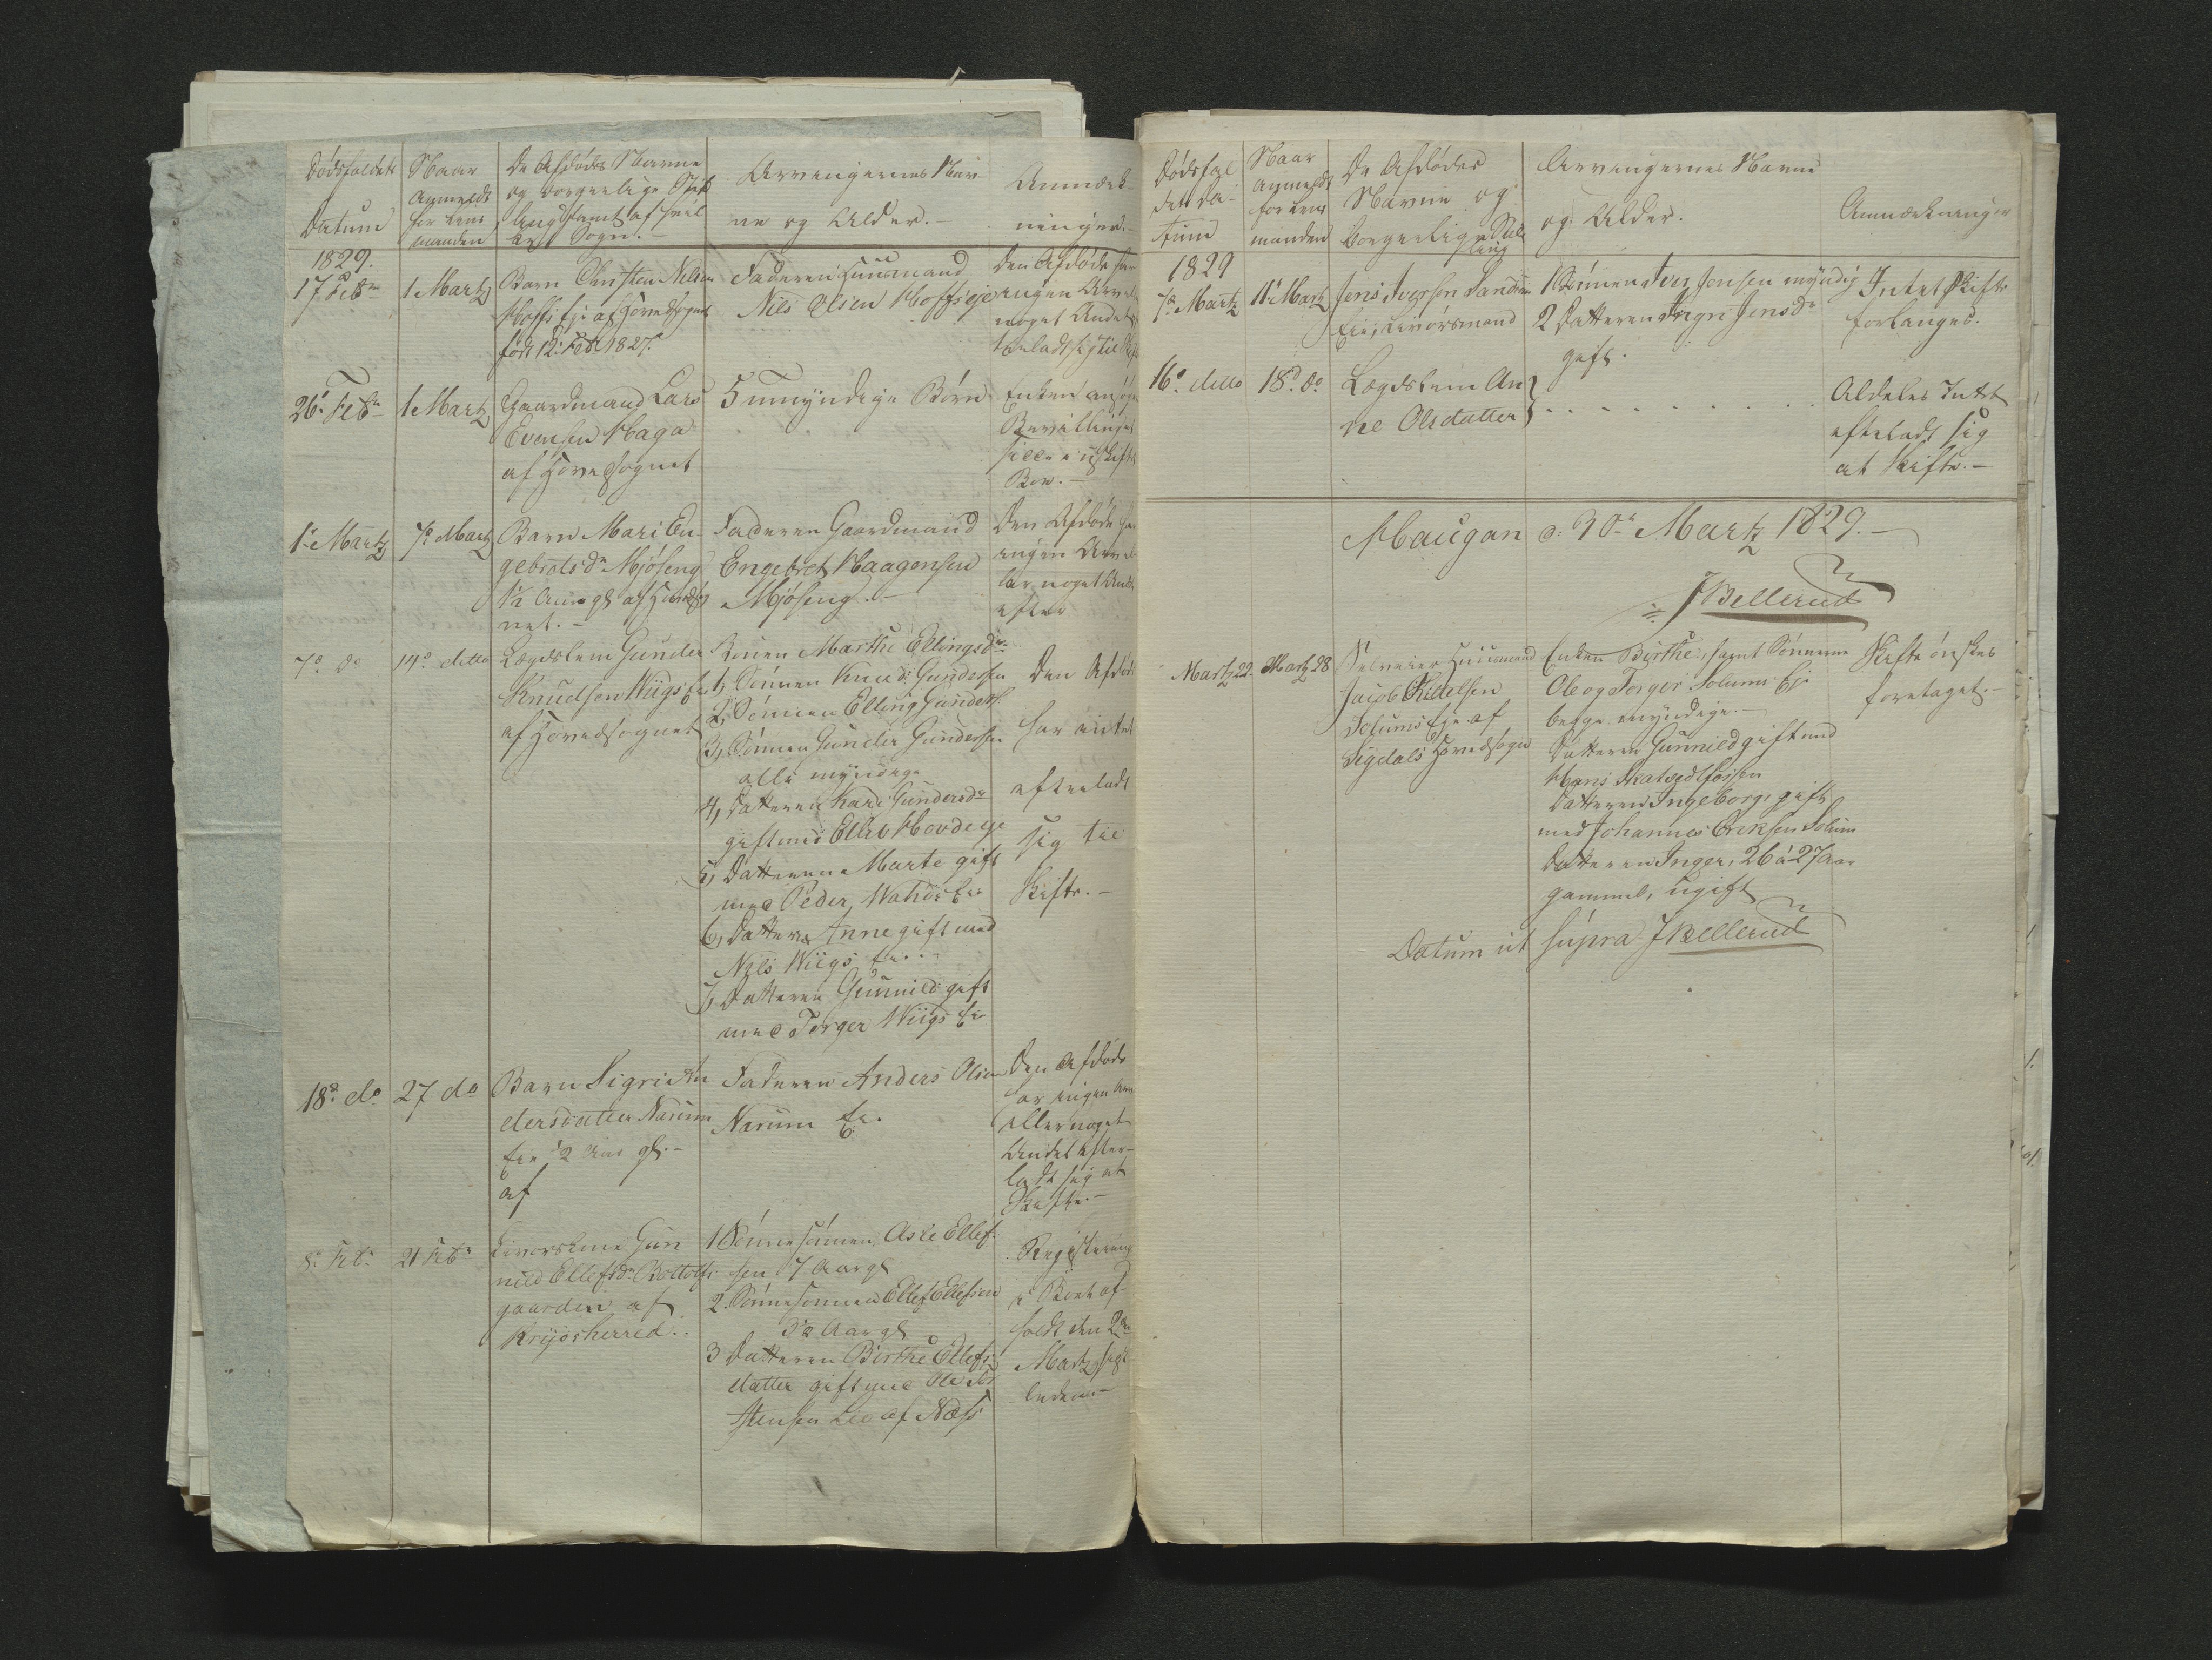 Dødsfaldets
Datum
Naar
anmeldt
for Lens
manden
De Afdødes Navne
og borgerlige Stil
ling samt af hvil
ket Sogn. -
Arvingernes Nav
ne og Alder. -
Anmærk-
ninger. -
1829.
17 Febr
1 Martz
Barn Christen Nelsen
Hoffs Eje af Hovedsognet
født 12. Feb 1827.
Faderen Huusmand
Nils Olsen Hoffseje
Den Afdøde har
ingen Arv
noget Andet
26. Febr
1 Martz
Gaardmand Lars
Evensen Haga
af Hovedsognet
5 umyndige Børn
Enken
Bevilling
Boe. -
1. Martz
7. Martz
Barn Mari En-
gebretsdr Mjøseng
1/2 Aar gl af
net. -
Faderen Gaardmand
Engebret Haagensen
Mjøseng. -
Den Afdøde har
ingen Arv
noget
efter
7. do
14. ditto
Lægdslem Gunder
Knudsen Wiigs Eje
af Hovedsognet
Konen Marthe Ellingsdr
1, Sønnen Knud Gundersen
2, Sønnen Elling Gunders.
3, Sønnen Gunder Gundersen
alle myndige
4, Datteren Kari Gundersdr
gift med Ellev Hovde eje
5, Datteren Marte gift
med Peder Wahds Eie
6, Datteren Anne gift med
Nils Wiigs Eie. -
7, Datteren Gunnild gift
med Torger Wiigs Eie
Den Afdøde
har intet
efterladt
sig til
Skifte. -
18. do
27 do
Barn Sigri An
dersdatter Narum
Eie 1/2 Aar gl. -
af
Faderen Anders Olsen
Narum Eie
Den Afdøde
har ingen Arv
eller noget
Andet efter-
ladt sig at
Skifte. -
8. Feb.
21 Febr
Livørskone Gun
nild Ellefsdr Bottolfs
gaarden af
Krydsherred. .
1 Sønnesønnen Asle Ellef-
sen 7 Aar gl
2. Sønnesønnen Ellef Ellefsen
3 1/2 Aar gl
3 Datteren Birthe Ellefs
datter gift med Ole
stensen Lie af Næss
Registrering
i Boet af-
holdt den 2den
Martz sidst
leden. -
Dødsfal
dets Da-
tum
Naar
anmeldt
for Lens
manden
De Afdødes
Navne og
borgerlige Stil
ling
Arvingernes Navne
og Alder.
Anmærkninger
1829
7. Martz
11. Martz
Jens Iversen Sandsen
Eie, Livørsmand
1 Sønnen Iver Jensen myndig
2 Datteren Ingri Jensdr
gift.
Intet Skifte
forlanges.
16. ditto
18. do
Lægdslem An
ne Olsdatter
Aldeles Intet
efterladt sig
at skifte. -
Haugan d: 30. Martz 1829. -
J Bellerud
Martz 22.
Martz 28
Selveier Huusmand
Jacob Kittelsen
Solums Eje af
Sigdals Hovedsogn
Enken Birthe, samt Sønnerne
Ole og Torger Solums Eje
begge myndige. -
Datteren Gunnild gift med
Hans Skatvedtfossen
Datteren Ingeborg, gift
med Johannes Eriksen Solum
Datteren Inger, 26 à 27 Aar
gammel, ugift
Skifte ønskes
foretaget. -
Datum ut supra J Bellerud